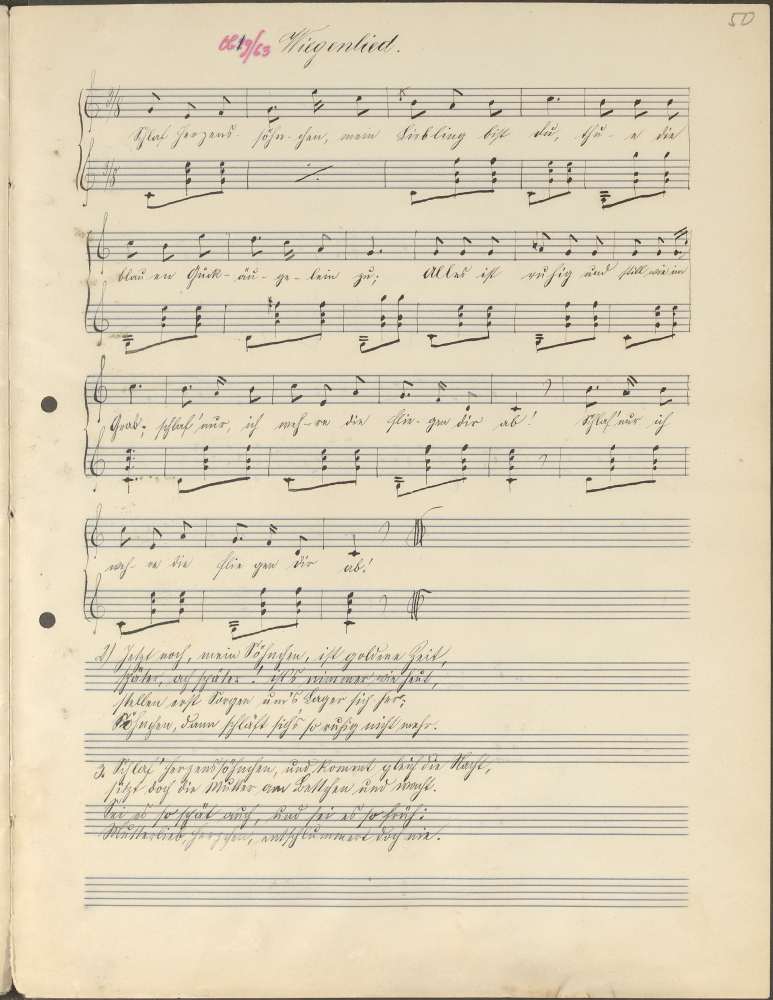 50
Wiegenlied.
3/8
Schlaf Herzens- söhn-chen, mein Liebling bist du, thu-e die
3/8
blau en Guck-äu-ge-lein zu; Alles ist ruhig und still wie im
Grab; schlaf' nur, ich weh-re die Flie-gen dir ab! Schlaf' nur ich
weh-re die Flie gen dir ab!
2) Jetzt noch, mein Söhnchen, ist goldene Zeit,
später, ach später! ist's nimmer wie heut,
stellen erst Sorgen um's Lager sich her,
Söhnchen, dann schläft sich's so ruhig nicht mehr.
3. Schlaf' Herzenssöhnchen, und kommt gleich die Nacht,
sitzt doch die Mutter am Bettchen und wacht.
Sei es so spät auch, und sei es so früh:
Mutterlieb, Herzchen, entschlummert doch nie.